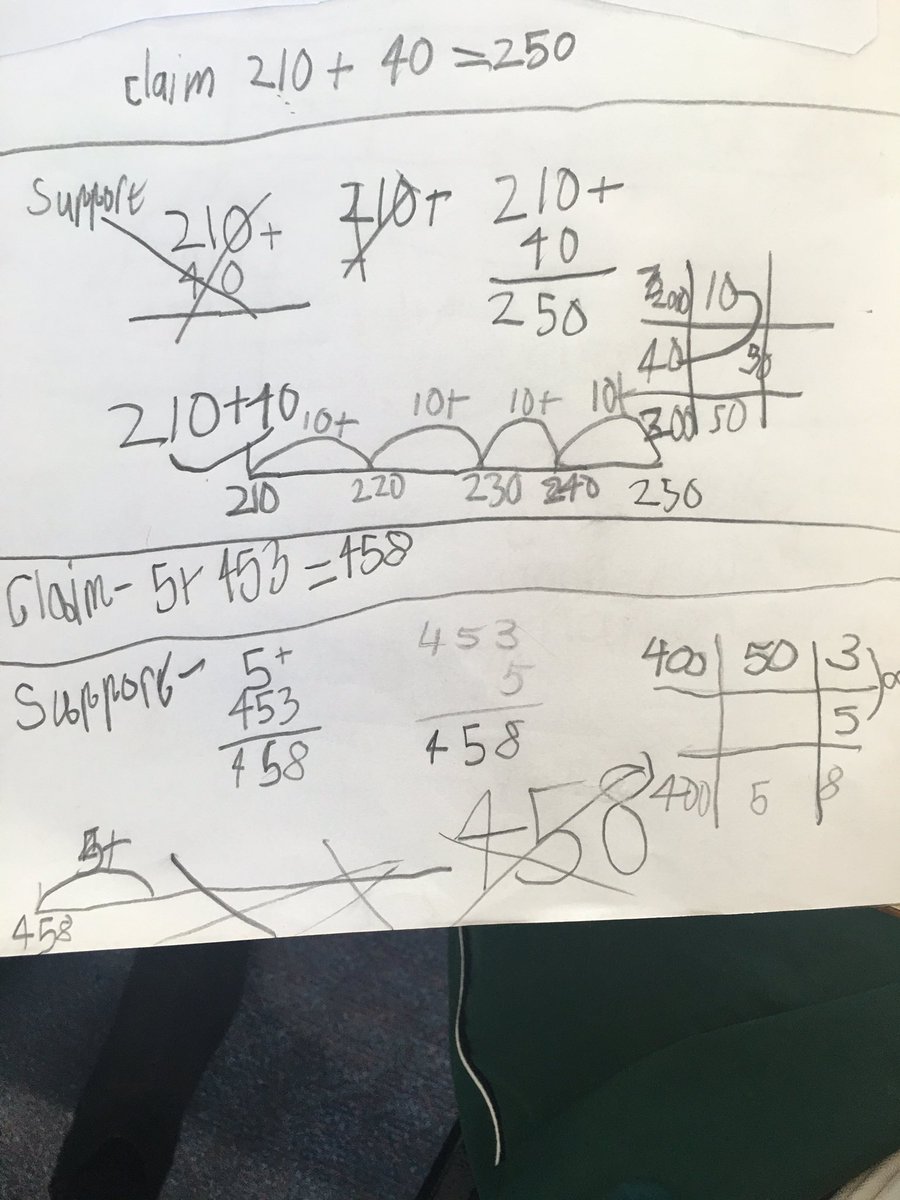 claim 210 + 40 = 250
Support
210+
40
210+
210+
40
250
200 10
40 50
300 50
210+40 10+ 10+ 10+ 10+
210 220 230 240 250
Claim - 5+ 453 = 458
Support -
5+
453
458
453
5
458
400 50 3
5
400 5 8
458
5+
458